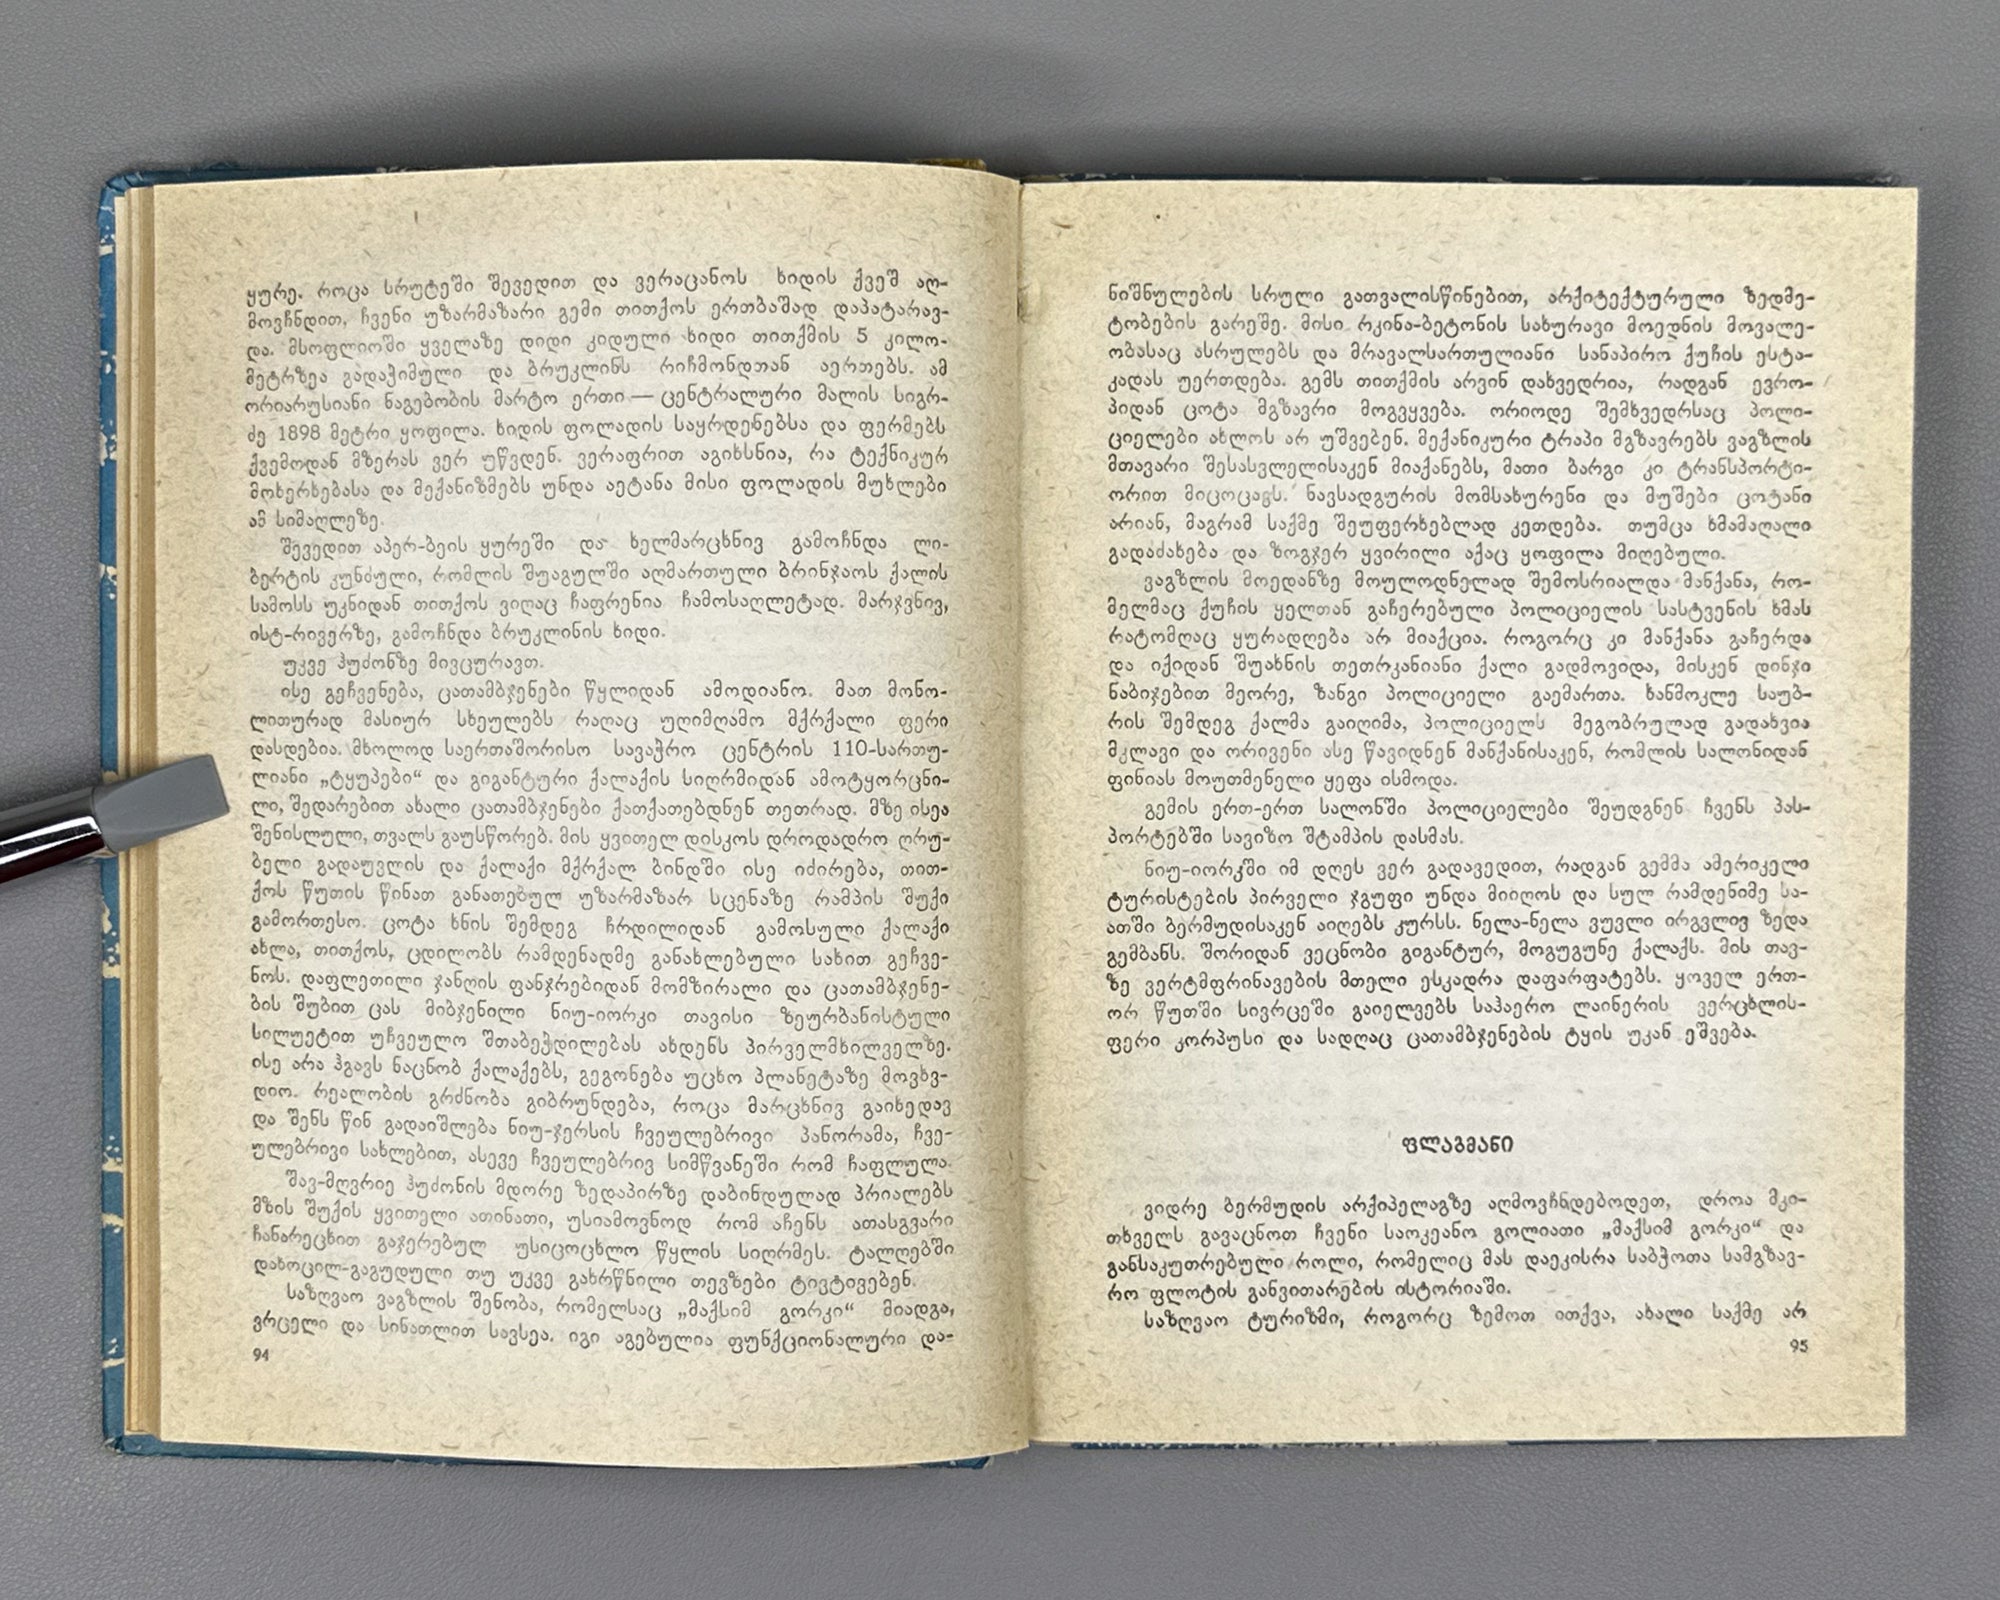 ყურე. როცა სრუტეში შევედით და ვერაცანოს ხიდის ქვეშ აღ-
მოვჩნდით, ჩვენი უზარმაზარი გემი თითქოს ერთბაშად დაპატარავ-
და. მსოფლიოში ყველაზე დიდი კიდული ხიდი თითქმის 5 კილო-
მეტრზეა გადაჭიმული და ბრუკლინს რიჩმონდთან აერთებს. ამ
ორიარუსიანი ნაგებობის მარტო ერთი — ცენტრალური მალის სიგრ-
ძე 1898 მეტრი ყოფილა. ხიდის ფოლადის საყრდენებსა და ფერმებს
ქვემოდან მზერას ვერ უწვდენ. ვერაფრით აგიხსნია, რა ტექნიკურ
მოხერხებასა და მექანიზმებს უნდა აეტანა მისი ფოლადის მუხლები
ამ სიმაღლეზე.
შევედით აპერ-ბეის ყურეში და ხელმარცხნივ გამოჩნდა ლი-
ბერტის კუნძული, რომლის შუაგულში აღმართული ბრინჯაოს ქალის
სამოსს უკნიდან თითქოს ვიღაც ჩაფრენია ჩამოსაღლეტად. მარჯვნივ,
ისტ-რივერზე, გამოჩნდა ბრუკლინის ხიდი.
უკვე ჰუძონზე მივცურავთ.
ისე გეჩვენება, ცათამბჯენები წყლიდან ამოდიანო. მათ მონო-
ლითურად მასიურ სხეულებს რაღაც უღიმღამო მქრქალი ფერი
დასდებია. მხოლოდ საერთაშორისო სავაჭრო ცენტრის 110-სართუ-
ლიანი „ტყუპები“ და გიგანტური ქალაქის სიღრმიდან ამოტყორცნი-
ლი, შედარებით ახალი ცათამბჯენები ქათქათებდნენ თეთრად. მზე ისეა
შენისლული, თვალს გაუსწორებ. მის ყვითელ დისკოს დროდადრო ღრუ-
ბელი გადაუვლის და ქალაქი მქრქალ ბინდში ისე იძირება, თით-
ქოს წუთის წინათ განათებულ უზარმაზარ სცენაზე რამპის შუქი
გამორთესო. ცოტა ხნის შემდეგ ჩრდილიდან გამოსული ქალაქი
ახლა, თითქოს, ცდილობს რამდენადმე განახლებული სახით გეჩვე-
ნოს. დაფლეთილი ჯანღის ფანჯრებიდან მომზირალი და ცათამბჯენე-
ბის შუბით ცას მიბჯენილი ნიუ-იორკი თავისი ზეურბანისტული
სილუეტით უჩვეულო შთაბეჭდილებას ახდენს პირველმხილველზე.
ისე არა ჰგავს ნაცნობ ქალაქებს, გეგონება უცხო პლანეტაზე მოვხვ-
დიო. რეალობის გრძნობა გიბრუნდება, როცა მარცხნივ გაიხედავ
და შენს წინ გადაიშლება ნიუ-ჯერსის ჩვეულებრივი პანორამა, ჩვე-
ულებრივი სახლებით, ასევე ჩვეულებრივ სიმწვანეში რომ ჩაფლულა.
შავ-მღვრიე ჰუძონის მდორე ზედაპირზე დაბინდულად პრიალებს
მზის შუქის ყვითელი ათინათი, უსიამოვნოდ რომ აჩენს ათასგვარი
ჩანარეცხით გაჯერებულ უსიცოცხლო წყლის სიღრმეს. ტალღებში
დახოცილ-გაგუდული თუ უკვე გახრწნილი თევზები ტივტივებენ.
საზღვაო ვაგზლის შენობა, რომელსაც „მაქსიმ გორკი“ მიადგა,
ვრცელი და სინათლით სავსეა. იგი აგებულია ფუნქციონალური და-
94
ნიშნულების სრული გათვალისწინებით, არქიტექტურული ზედმე-
ტობების გარეშე. მისი რკინა-ბეტონის სახურავი მოედნის მოვალე-
ობასაც ასრულებს და მრავალსართულიანი სანაპირო ქუჩის ესტა-
კადას უერთდება. გემს თითქმის არვინ დახვედრია, რადგან ევრო-
პიდან ცოტა მგზავრი მოგვყვება. ორიოდე შემხვედრსაც პოლი-
ციელები ახლოს არ უშვებენ. მექანიკური ტრაპი მგზავრებს ვაგზლის
მთავარი შესასვლელისაკენ მიაქანებს, მათი ბარგი კი ტრანსპორტი-
ორით მიცოცავს. ნავსადგურის მომსახურენი და მუშები ცოტანი
არიან, მაგრამ საქმე შეუფერხებლად კეთდება. თუმცა ხმამაღალი
გადაძახება და ზოგჯერ ყვირილი აქაც ყოფილა მიღებული.
ვაგზლის მოედანზე მოულოდნელად შემოსრიალდა მანქანა, რო-
მელმაც ქუჩის ყელთან გაჩერებული პოლიციელის სასტვენის ხმას
რატომღაც ყურადღება არ მიაქცია. როგორც კი მანქანა გაჩერდა
და იქიდან შუახნის თეთრკანიანი ქალი გადმოვიდა, მისკენ დინჯი
ნაბიჯებით მეორე, ზანგი პოლიციელი გაემართა. ხანმოკლე საუბ-
რის შემდეგ ქალმა გაიღიმა, პოლიციელს მეგობრულად გადახვია
მკლავი და ორივენი ასე წავიდნენ მანქანისაკენ, რომლის სალონიდან
ფინიას მოუთმენელი ყეფა ისმოდა.
გემის ერთ-ერთ სალონში პოლიციელები შეუდგნენ ჩვენს პას-
პორტებში სავიზო შტამპის დასმას.
ნიუ-იორკში იმ დღეს ვერ გადავედით, რადგან გემმა ამერიკელი
ტურისტების პირველი ჯგუფი უნდა მიიღოს და სულ რამდენიმე სა-
ათში ბერმუდისაკენ აიღებს კურსს. ნელა-ნელა ვუვლი ირგვლივ ზედა
გემბანს. შორიდან ვეცნობი გიგანტურ, მოგუგუნე ქალაქს. მის თავ-
ზე ვერტმფრინავების მთელი ესკადრა დაფარფატებს. ყოველ ერთ-
ორ წუთში სივრცეში გაიელვებს საჰაერო ლაინერის ვერცხლის-
ფერი კორპუსი და სადღაც ცათამბჯენების ტყის უკან ეშვება.
ფლაგმანი
ვიდრე ბერმუდის არქიპელაგზე აღმოვჩნდებოდეთ, დროა მკი-
თხველს გავაცნოთ ჩვენი საოკეანო გოლიათი „მაქსიმ გორკი“ და
განსაკუთრებული როლი, რომელიც მას დაეკისრა საბჭოთა სამგზავ-
რო ფლოტის განვითარების ისტორიაში.
საზღვაო ტურიზმი, როგორც ზემოთ ითქვა, ახალი საქმე არ
95